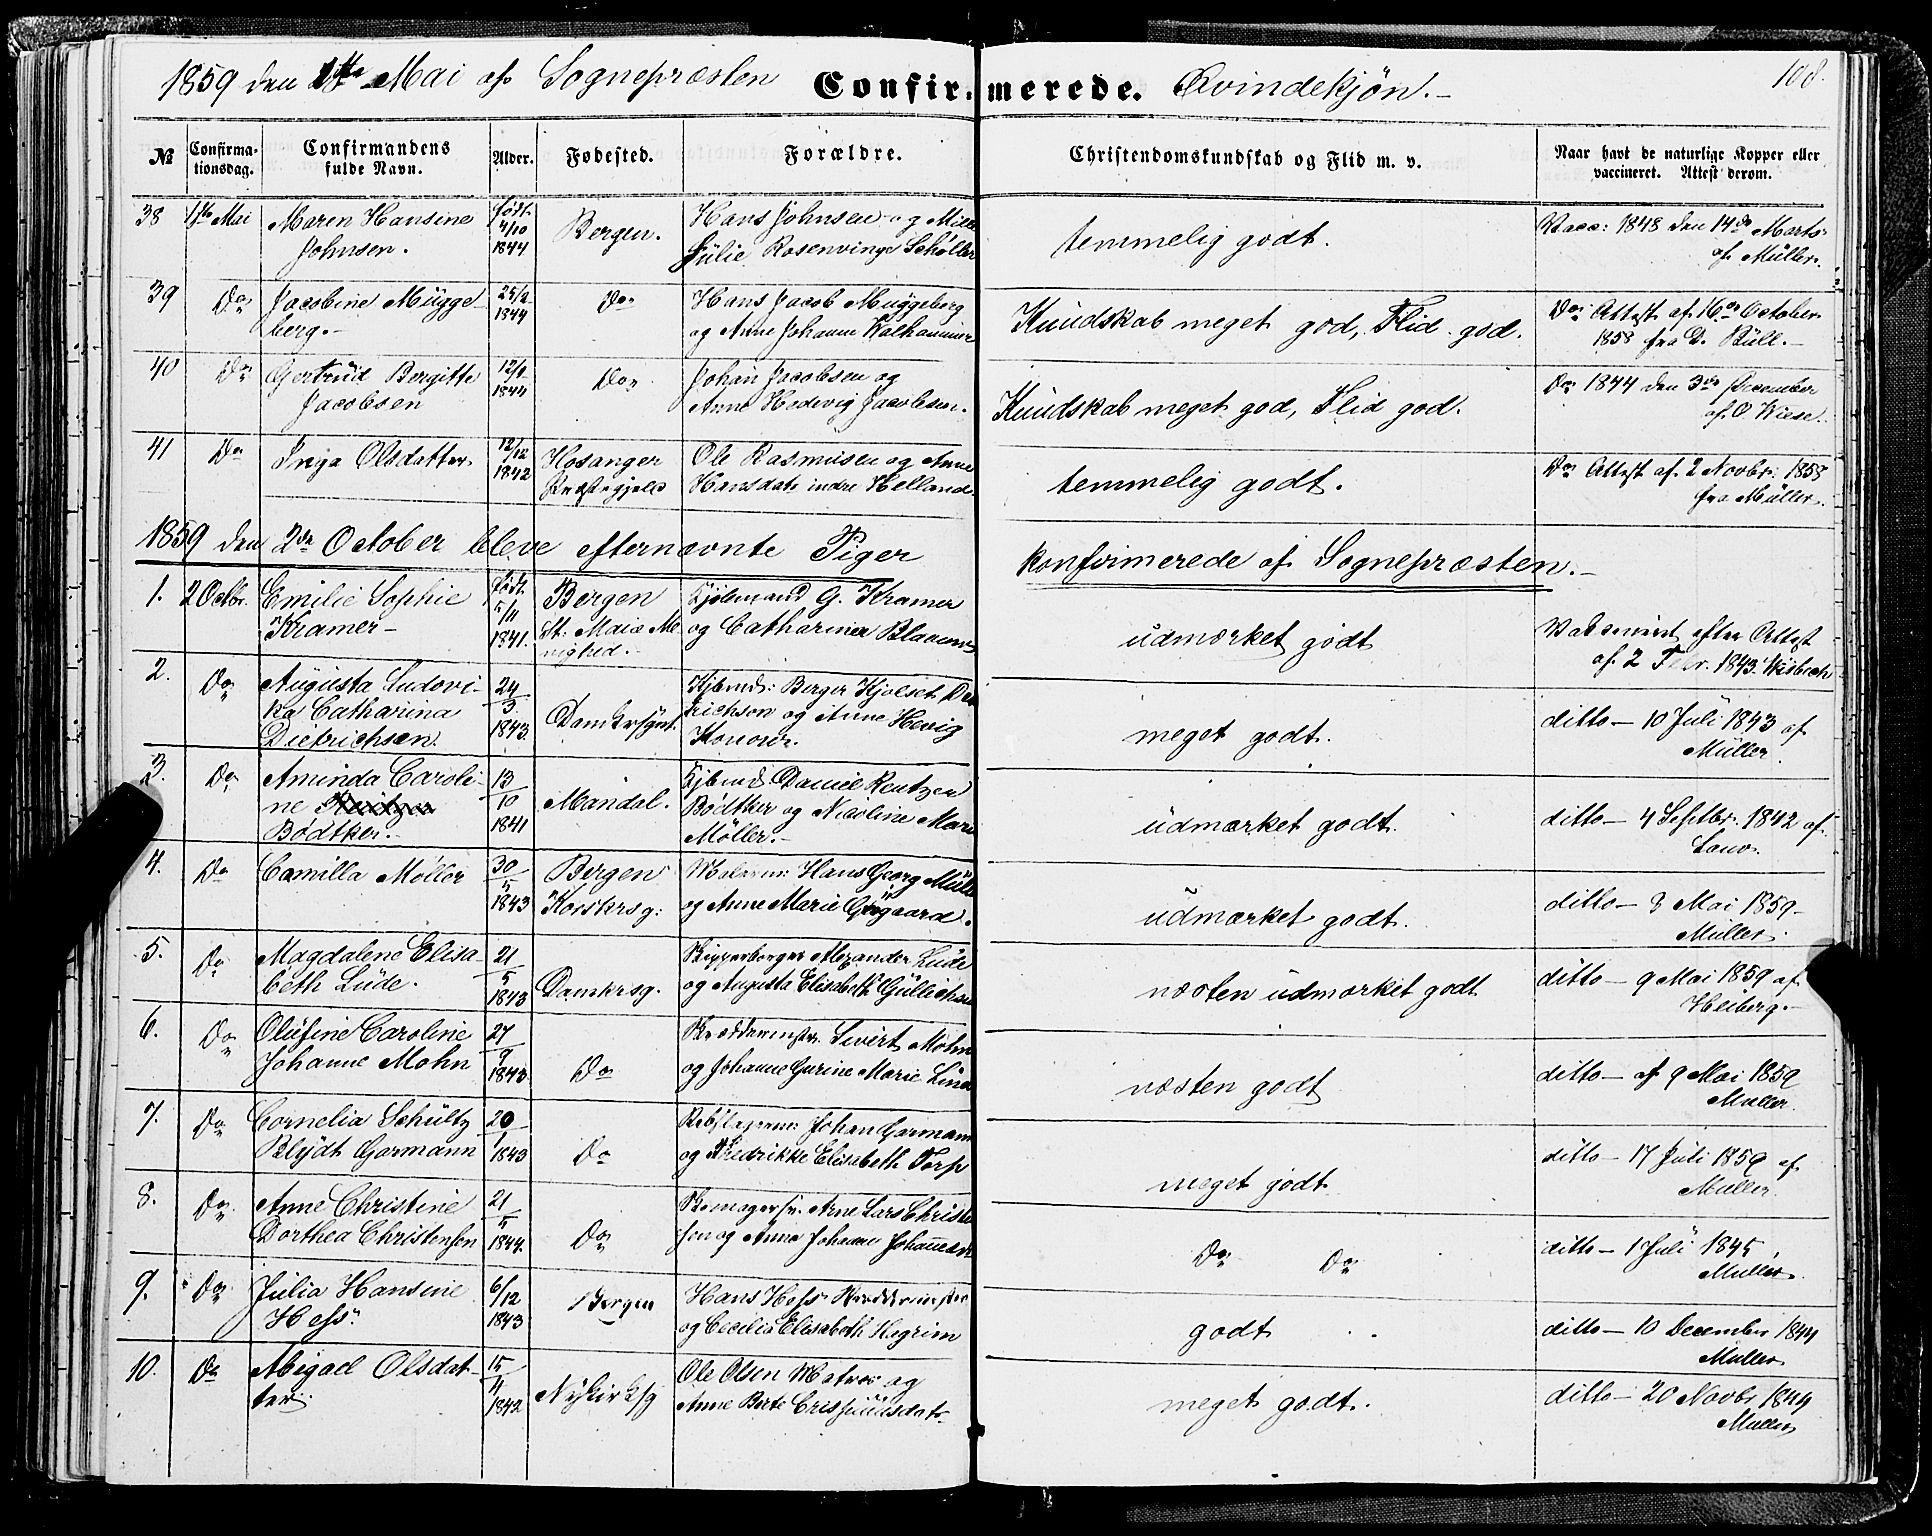 1859 den 1ste Mai af Sognepræsten Confirmerede. Qvindekjøn.- 108.
No Confirmationsdag. Confirmandens fulde Navn. Alder. Fødested. Forældre. Christendomskundskab og Flid m. v. Naar havt de naturlige Kopper eller vaccineret. Attest derom.
38 1ste Mai Maren Hansine Johnsen. født 4/10 1844 Bergen. Hans Johnsen og
Julie Rosenvinge Schøller temmelig godt. Vacc: 1848 den 14de Marts af Müller.
39 Do Jacobine Müggeberg.- 1844 Do Hans Jacob Muggeberg
og Anne Johanne Kundskab meget god, Flid god. Do Attest af 16de October 1858 fra D. Büll.-
40 Do Gertrüd Bergitte Jacobsen 1844 Do Johan Jacobsen og
Anne Hedevig Jacobsen. Kundskab meget god, Flid god. Do 1844 den 3die December af O. Wiese.
41 Do Inga Olsdatter 12/12 1842 Hosanger Præstegjeld Ole Rasmusen og Anne
Hansdatr indre Helland temmelig godt. Do Attest af 2 Novbr: 1858 fra Müller.
1859 den 2den October bleve efternævnte Piger konfirmerede af Sognepræsten.-
1. 2 Octbr. Emilie Sophie Kramer- født 5/11 1841. Bergen St: Maiæ Menighed.- Kjøbmand G. Kramer
og Catharina udmærket godt Vaksineret efter Attest af 2 Febr. 1843.
2. Do Augusta Ludovika Catharina Dietrichsen. 24/3 1843. Kjbmd: Berger
og Anne meget godt. ditto- 10 Juli 1843 af Müller.
3. Do Aminda Caroline Bödtker.- 13/10 1841 Mandal. Kjbmd Daniel Rentzen
Bödtker og Nicoline Marie
Möller.- udmærket godt. ditto- 4 Septbr. 1842 af
4. Do Camilla Møller 30/5 1843 Bergen Korskrsg: Hans Georg
og Anne Marie udmærket godt. ditto- 9 Mai 1859- Müller.
5. Do Magdalene Elisabeth Lüde. 21/5 1843 Domkrsg. Skipperborger Alexander Lüde
og Augusta Elisabeth næsten udmærket godt ditto- 9 Mai 1859 af Heiberg.-
6. Do Olüfine Caroline Johanne Mohn 27/9 1843 Do Sivert Mohn
og Johanne Gurine Marie næsten godt ditto- af 9 Mai 1859 Müller.
7. Do Cornelia Schültz Blydt Garmann 20/1 1843 Do Johan Garmann
og Fredrikke Elisabeth Torp meget godt ditto- 17 Juli 1859 af Müller.
8. Do Anne Christine Dorthea Christensen 21/5 1844. Do Arne Lars
og Anna Johanne Do Do ditto- 1 Juli 1845, Müller.
9. Do Julia Hansine Hess. 6/12 1843 Bergen Hans Hess Skreddermester
og Cecilia Elisabeth Hegrim godt ditto- 10 December 1844 Müller
10. Do Abigael Olsdatter. 15/11 1842 Nykirksg Ole Olsen Matros og
Anne Berte meget godt. ditto- 20 Novbr 1849 Müller